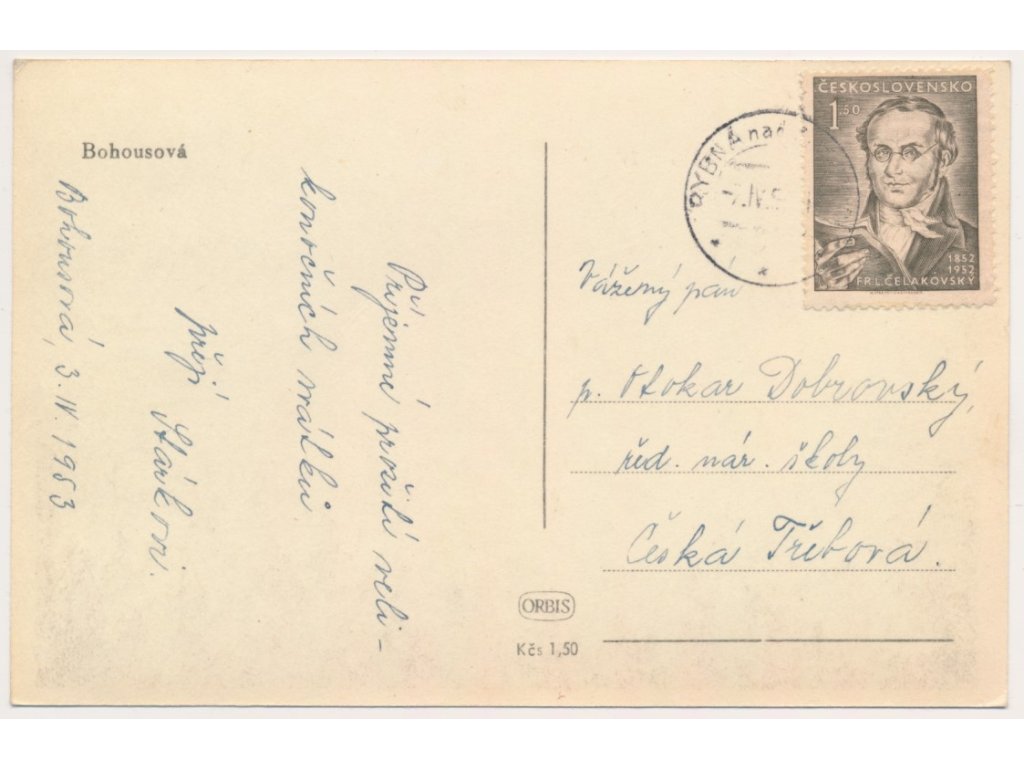 Bohousová
Bohousová, 3. IV. 1953
Příjemné prožití veli-
konočních svátků
přejí
Stárkovi.
RYBNÁ nad
IV.5
ČESKOSLOVENSKO
1.50
1852
1952
FR.L.ČELAKOVSKÝ
Vážený pan
p. Otokar Dobrovský,
řed. nár. školy
Česká Třebová.
ORBIS
Kčs 1,50